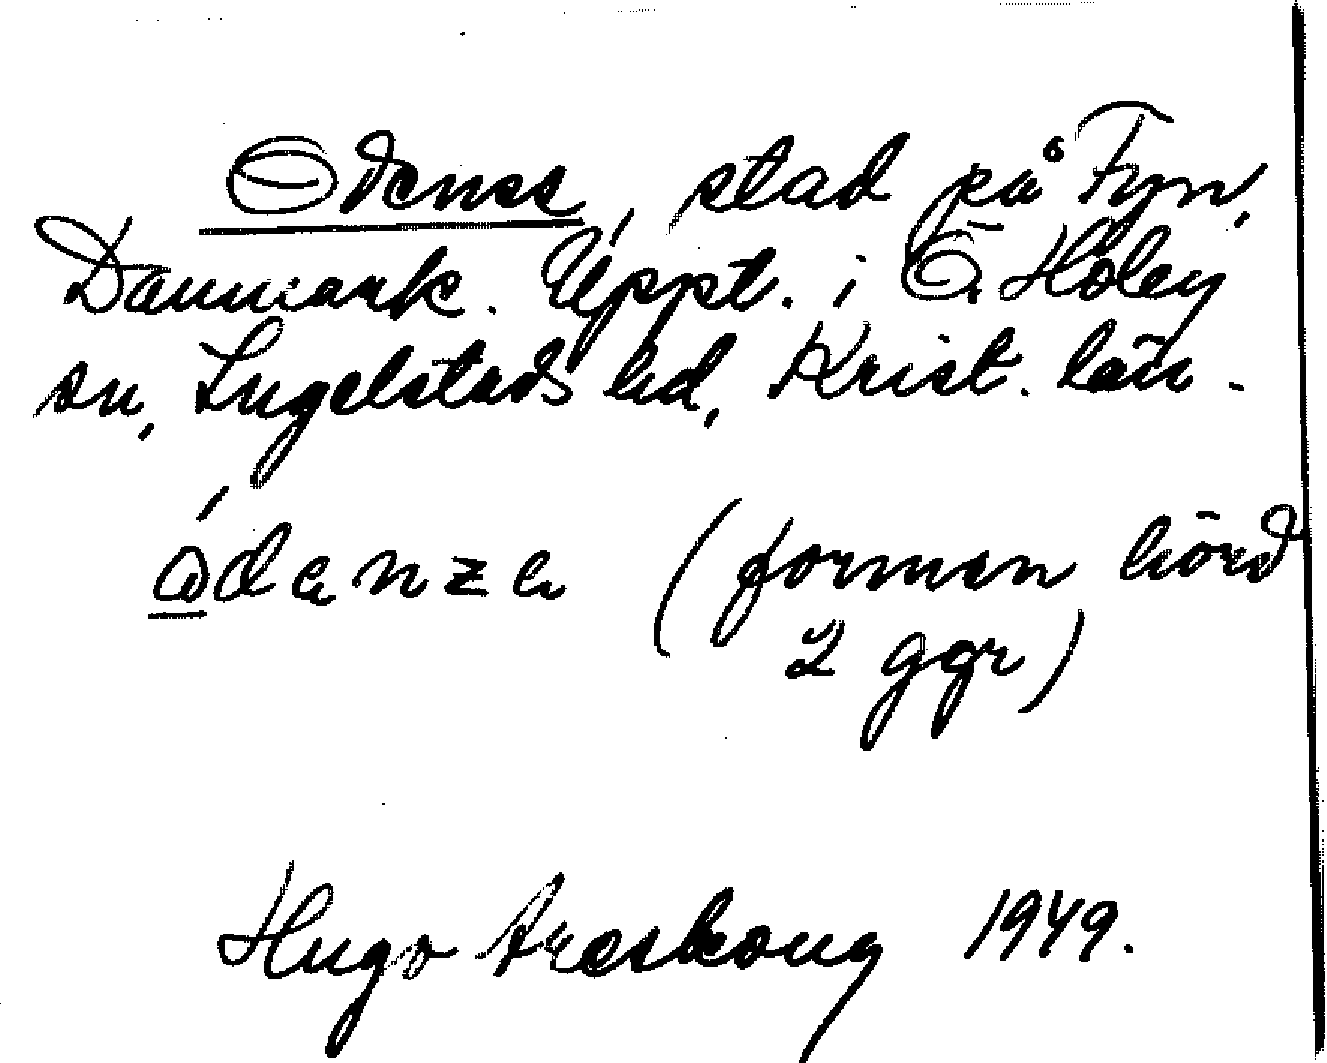 Odense, stad på Fyn,
Danmark. Uppt. i Ö. Hoby
sn, Ingelstads hd, Krist. län.
(formen hörd
2 ggr)
Hugo Areskoug 1949.